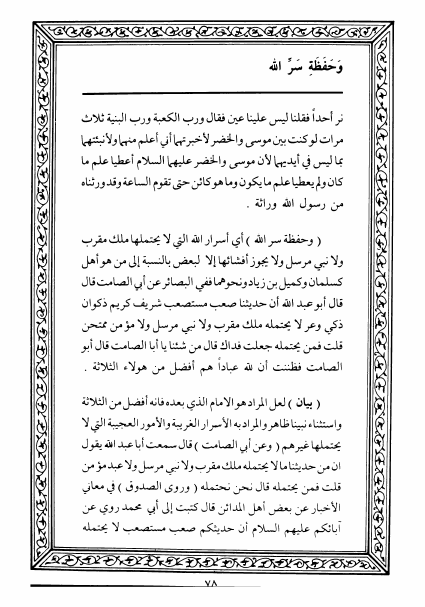 وَحَفَظَةِ سَرِّ الله
نر أحداً فقلنا ليس علينا عين فقال ورب الكعبة ورب البنية ثلاث
مرات لو كنت بين موسى والخضر لأخبرتهما أني أعلم منهما ولأنبئتهما
بما ليس في أيديهما لأن موسى والخضر عليهما السلام أعطيا علم ما
كان ولم يعطيا علم ما يكون وما هو كائن حتى تقوم الساعة وقد ورثناه
من رسول الله وراثة .
( وحفظة سر الله ) أي أسرار الله التي لا يحتملها ملك مقرب
ولا نبي مرسل ولا يجوز أفشائها إلا لبعض بالنسبة إلى من هو أهل
كسلمان وكميل بن زياد ونحوهما ففي البصائر عن أبي الصامت قال
قال أبو عبد الله أن حديثنا صعب مستصعب شريف كريم ذكوان
ذكي وعر لا يحتمله ملك مقرب ولا نبي مرسل ولا مؤمن ممتحن
قلت فمن يحتمله جعلت فداك قال من شئنا يا أبا الصامت قال أبو
الصامت فظننت أن لله عباداً هم أفضل من هولاء الثلاثة .
( بيان ) لعل المراد هو الامام الذي بعده فانه أفضل من الثلاثة
واستثناء نبينا ظاهر والمراد به الأسرار الغريبة والأمور العجيبة التي لا
يحتملها غيرهم ( وعن أبي الصامت ) قال سمعت أبا عبد الله يقول
ان من حديثنا ما لا يحتمله ملك مقرب ولا نبي مرسل ولا عبد مؤمن
قلت فمن يحتمله قال نحن نحتمله ( وروى الصدوق ) في معاني
الأخبار عن بعض أهل المدائن قال كتبت إلى أبي محمد روي عن
آبائكم عليهم السلام أن حديثكم صعب مستصعب لا يحتمله
٧٨